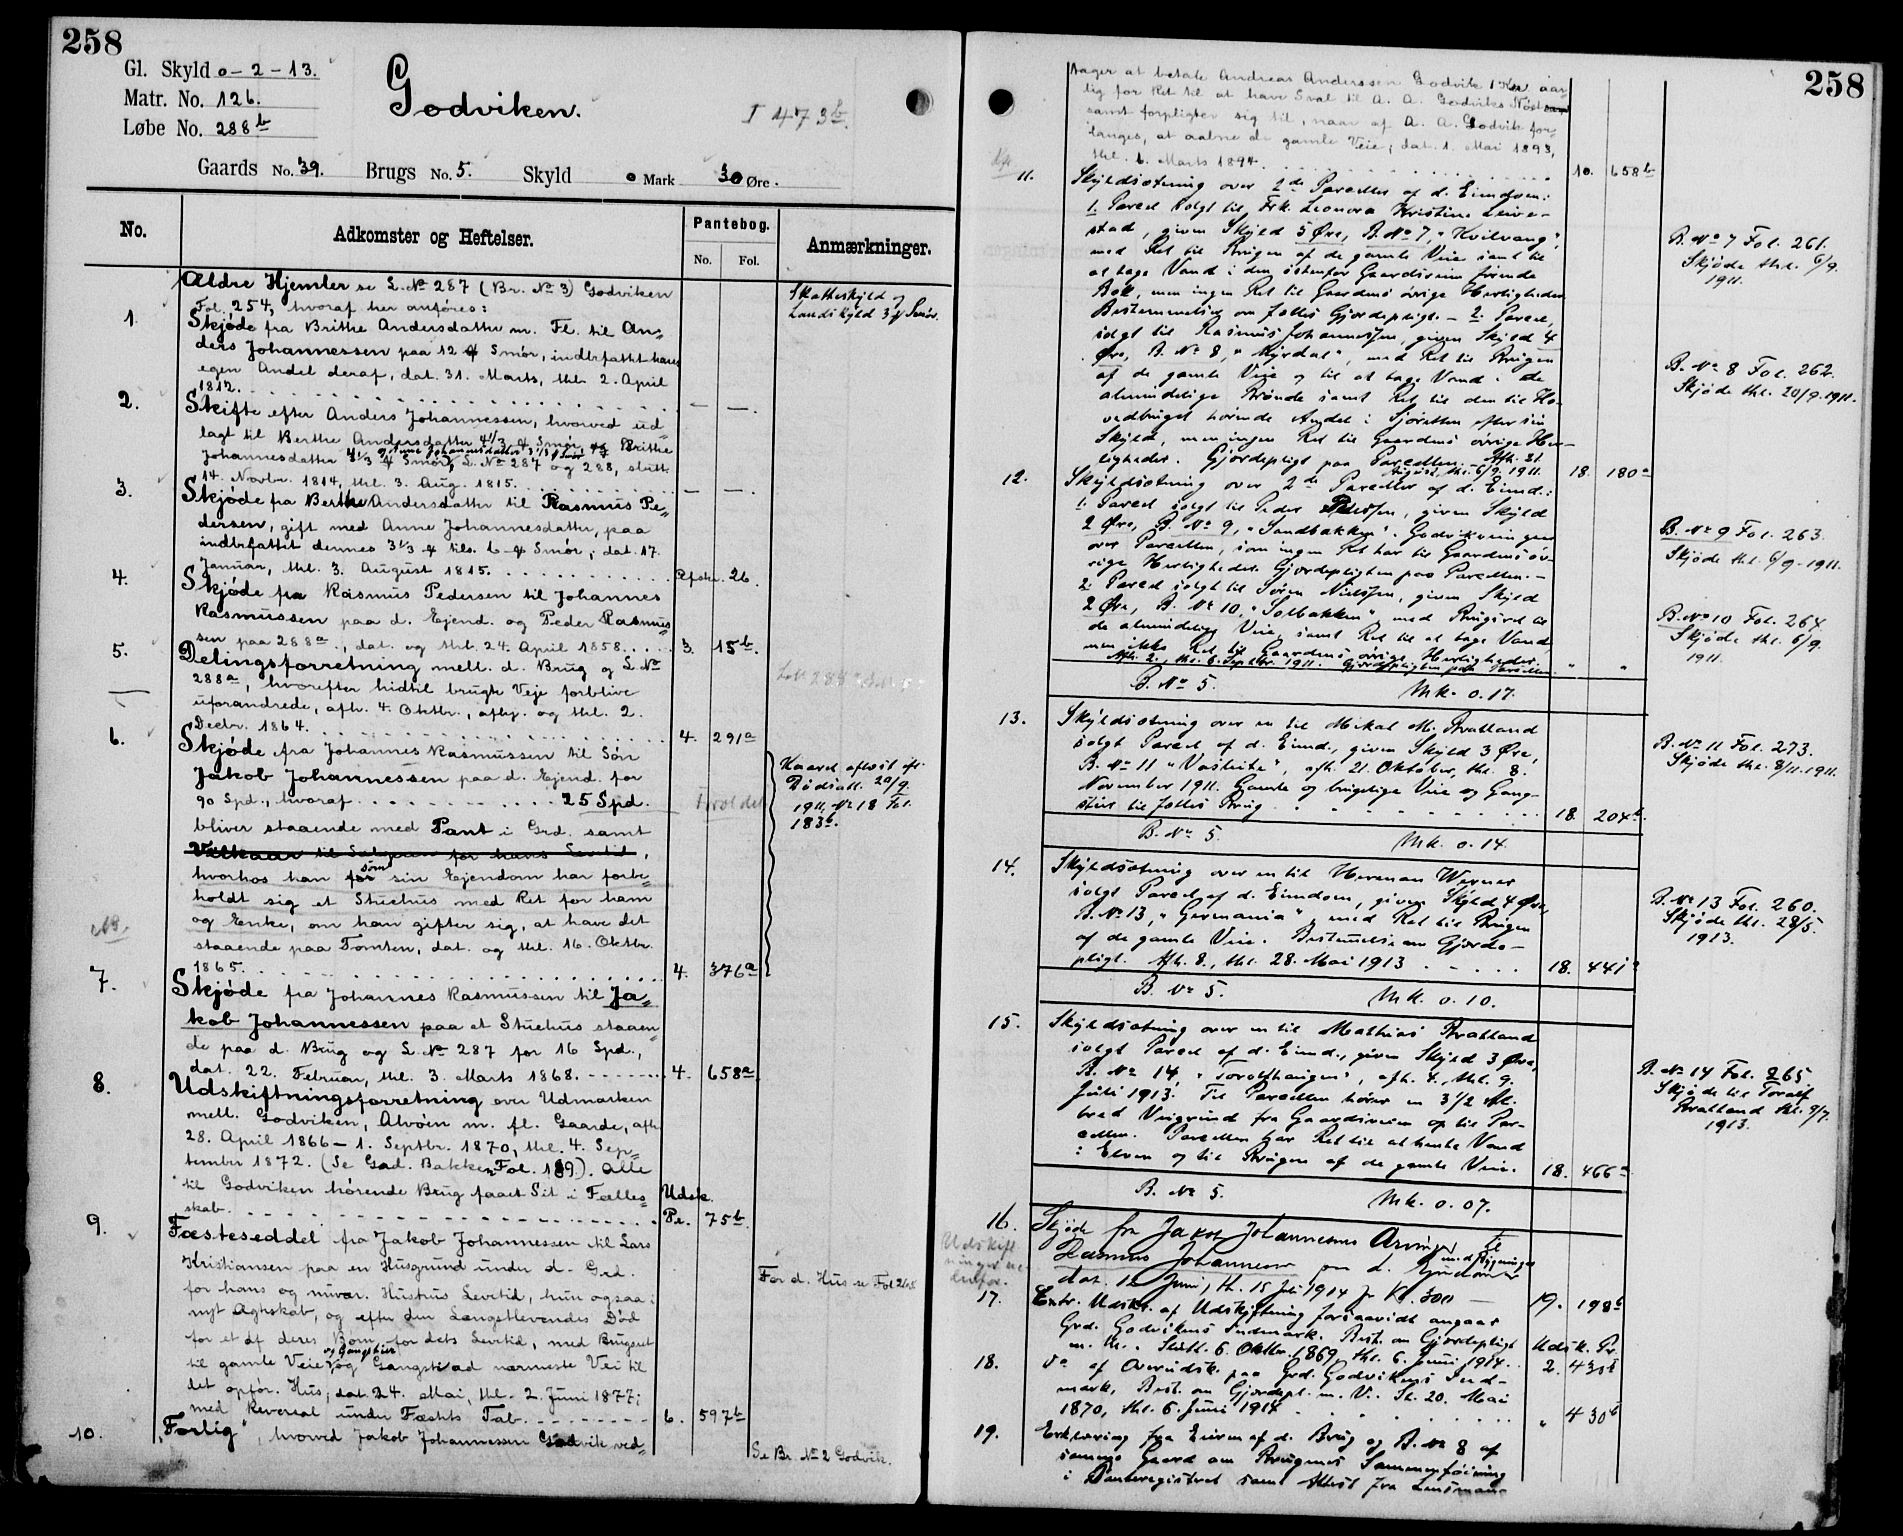 258
Gl. Skyld 0-2-13.
Matr. No. 126.
Løbe No. 288b
Godviken.
I 473b.
Gaards No. 39. Brugs No. 5. Skyld 0 Mark 30 Øre.
No.
Adkomster og Heftelser.
Pantebog.
No. Fol.
Anmærkninger.
Ældre Hjemler se L. No 287 (Br. No 3) Godviken
Fol. 254, hvoraf her anføres:
Skatteskyld og
Landskyld 3 Smør.
1. Skjøde fra Brithe Andersdatter m. Fl. til An„
ders Johannessen paa 12 Smør, indbefattet hans
egen Andel deraf, dat. 31. Marts, thl. 2. April
1812. — —.
2. Skifte efter Anders Johannessen, hvorved ud„
lagt til Berthe Andersdatter 4 1/3 Smør, Brithe
og Anne Johannesdatter 3 1/3 Smør
Johannesdatter 4 1/3 Smør, L. No 287 og 288, slutt.
14. Novbr. 1814, thl. 3. Aug. 1815. — —.
3. Skjøde fra Berthe Andersdatter til Rasmus Pe„
dersen, gift med Anne Johannesdatter, paa
indbefattet dennes 3 1/3 tils. 6 Smør, dat. 17.
Januar, thl. 3. August 1815. Afskr. 26.
4. Skjøde fra Rasmus Pedersen til Johannes
Rasmussen paa d. Ejend. og Peder Rasmus„
sen paa 288a, dat. og thl. 24. April 1858. 3. 15b.
5. Delingsforretning mell. d. Brug og L. No
288a, hvorefter hidtil brugte Veje forblive
uforandrede, afh. 4. Oktbr., afhj. og thl. 2.
Decbr. 1864. 4. 291a
6. Skjøde fra Johannes Rasmussen til Søn
Jakob Johannessen paa d. Ejend. for
90 Spd., hvoraf 25 Spd.
bliver staaende med Pant i Grd. samt
Vilkaar til Sælgeren for hans Levetid,
hvorhos han for som sin Ejendom har forbe„
holdt sig et Stuehus med Ret for ham
og Enke, om han gifter sig, at have det
staaende paa Tomten, dat. og thl. 16. Oktbr.
1865. 4. 376a
Kaaret aflyst eft.
Dødsatt. 20/9.
1911, No 18 Fol.
183b.
7. Skjøde fra Johannes Rasmussen til Ja„
kob Johannessen paa et Stuehus staaen„
de paa d. Brug og L. No 287 for 16 Spd.,
dat. 22. Februar, thl. 3. Marts 1868. 4. 658a
8. Udskiftningsforretning over Udmarken
mell. Godviken, Alvøen m. fl. Gaarde, afh.
28. April 1866 – 1. Septbr. 1870, thl. 4. Sep„
tember 1872. (Se Grd. Bakken Fol. 189). Alle
til Godviken hørende Brug faaet Sit i Fælles„
skab. Udsk. Pr. 75b.
9. Fæsteseddel fra Jakob Johannessen til Lars
Kristiansen paa en Husgrund under d. Grd.
for hans og nuvær. Hustrus Levetid, hun ogsaa i
nyt Ægteskab, og efter den Længstlevendes Død
for et af deres Børn, for dets Levetid, med Brugsret
til gamle Veie og Gangstier og Gangsti ad nærmeste Vei til
det opfør. Hus; dat. 24. Mai, thl. 2. Juni 1877;
med Revers under Fæstets Tab. 6. 597b
For d. Hus se Fol 268
10. „Forlig", hvorved Jakob Johannessen Godvik ved„
Se Br. No 2 Godvik.
258
tager at betale Andreas Anderssen Godvik 1 Kr. aar„
lig for Ret til at have Sval til A. A. Godviks Nøst
samt forpligter sig til, naar af A. A. Godvik for„
langes, at aabne de gamle Veie; dat. 1. Mai 1893,
thl. 6. Marts 1894. 10. 658b
11. Skyldsætning over 2de Parceller af d. Eiendom:
1. Parcel solgt til Frk. Leonora Kristine Leire–
stad, given Skyld 5 Øre, B. No 7, „Hvilvang",
med Ret til Brugen af de gamle Veie samt til
at tage Vand i den østenfor Gaardsveien
Bæk, men ingen Ret til Gaardens øvrige Herligheder.
Bestemmelse om fælles Gjerdepligt. – 2. Parcel,
solgt til Rasmus Johannessen, given Skyld 4
Øre, B. No 8, „Myrdal", med Ret til Brugen
af de gamle Veie og til at tage Vand i de
almindelige Brønde samt Ret til den til Ho–
vedbruget hørende Andel i Sjøretten efter sin
Skyld, men ingen Ret til Gaardens øvrige Her–
ligheder. Gjerdepligt paa Parcellen. Afh. 21.
August, thl. 6/9. 1911. 18. 180a
B. No 7 Fol. 261.
Skjøde thl. 6/9.
1911.
B. No 8 Fol. 262.
Skjøde thl. 20/9. 1911.
12. Skyldsætning over 2de Parceller af d. Eiend.:
1. Parcel solgt til Peder Pedersen, given Skyld
2 Øre, B. No 9, „Sandbakken".
over Parcellen, som ingen Ret har til Gaardens øv–
rige Herligheder. Gjerdepligten paa Parcellen. –
2. Parcel solgt til Søren Nielsen, given Skyld
2 Øre, B. No 10, „Solbakken" med Brugsret til
de almindelige Veie samt Ret til at tage Vand
men ikke Ret til Gaardens øvrige Herligheder.
Afh. 2., thl. 6. Septbr. 1911. Gjerdepligten paa Parcellen. „ „
B. No 9 Fol. 263.
Skjøde thl. 6/9-1911.
B. No 10 Fol. 264
Skjøde thl. 6/9.
1911.
B. No 5. Mk. 0.17.
13. Skyldsætning over en til Mikal M. Bratland
solgt Parcel af d. Eiend., given Skyld 3 Øre,
B. No 11 afh. 21. Oktober, thl. 8.
November 1911. Gamle og brugelige Veie og Gang–
stier til fælles Brug 18. 204b.
B. No 11 Fol. 273.
Skjøde thl. 8/11-1911.
B. No 5. Mk. 0.14.
14. Skyldsætning over en til Herman Werner
solgt Parcel af d. Eiendom, given Skyld 4 Øre,
B. No 13, „Germania", med Ret til Brugen
af de gamle Veie. Bestemmelse om Gjerde–
pligt. Afh. 8., thl. 28. Mai 1913 18. 441a
B. No 13 Fol. 260.
Skjøde thl. 28/5.
1913.
B. No 5. Mk. 0.10.
15. Skyldsætning over en til Mathias Bratland
solgt Parcel af d. Eiend., given Skyld 3 Øre,
B. No 14, „Toralfhaugen", afh. 4., thl. 9.
Juli 1913. Til Parcellen hører en 3 1/2 Al.
bred Veigrund fra Gaardsveien op til Par–
cellen. Parcellen har Ret til at hente Vand
i Elven og til Brugen af de gamle Veie. 18. 466a
B. No 14 Fol. 265
Skjøde til Toralf
Bratland thl. 9/7.
1913.
B. No 5. Mk. 0.07.
16. Skjøde fra Jakob Johannesens Arvinger til
Rasmus Johannessen paa d. Eiendom med Bygninger
dat. 12 Juni, thl. 15 Juli 1914 for Kr. 300 – 19. 198b
Udskift
ninger ne
denfor.
17. Extr. Udskr. af Udskiftning forsaavidt angaar
Grd. Godvikens Indmark. Best. om Gjerdepligt
m. m. Slutt. 6. Oktbr. 1869, thl. 6. Juni 1914. Udsk. Pr. 2. 430b
18. do af Overudsk. paa Grd. Godvikens Ind–
mark, Best. om Gjerdepl. m. V. Sl. 20. Mai
1870, thl. 6. Juni 1914 „ 430b
19. Erklæring fra Eieren af d. Brug og B. No 8 af
samme Gaard om Brugenes Sammenføining
i Panteregistret samt Attest fra Lensman–